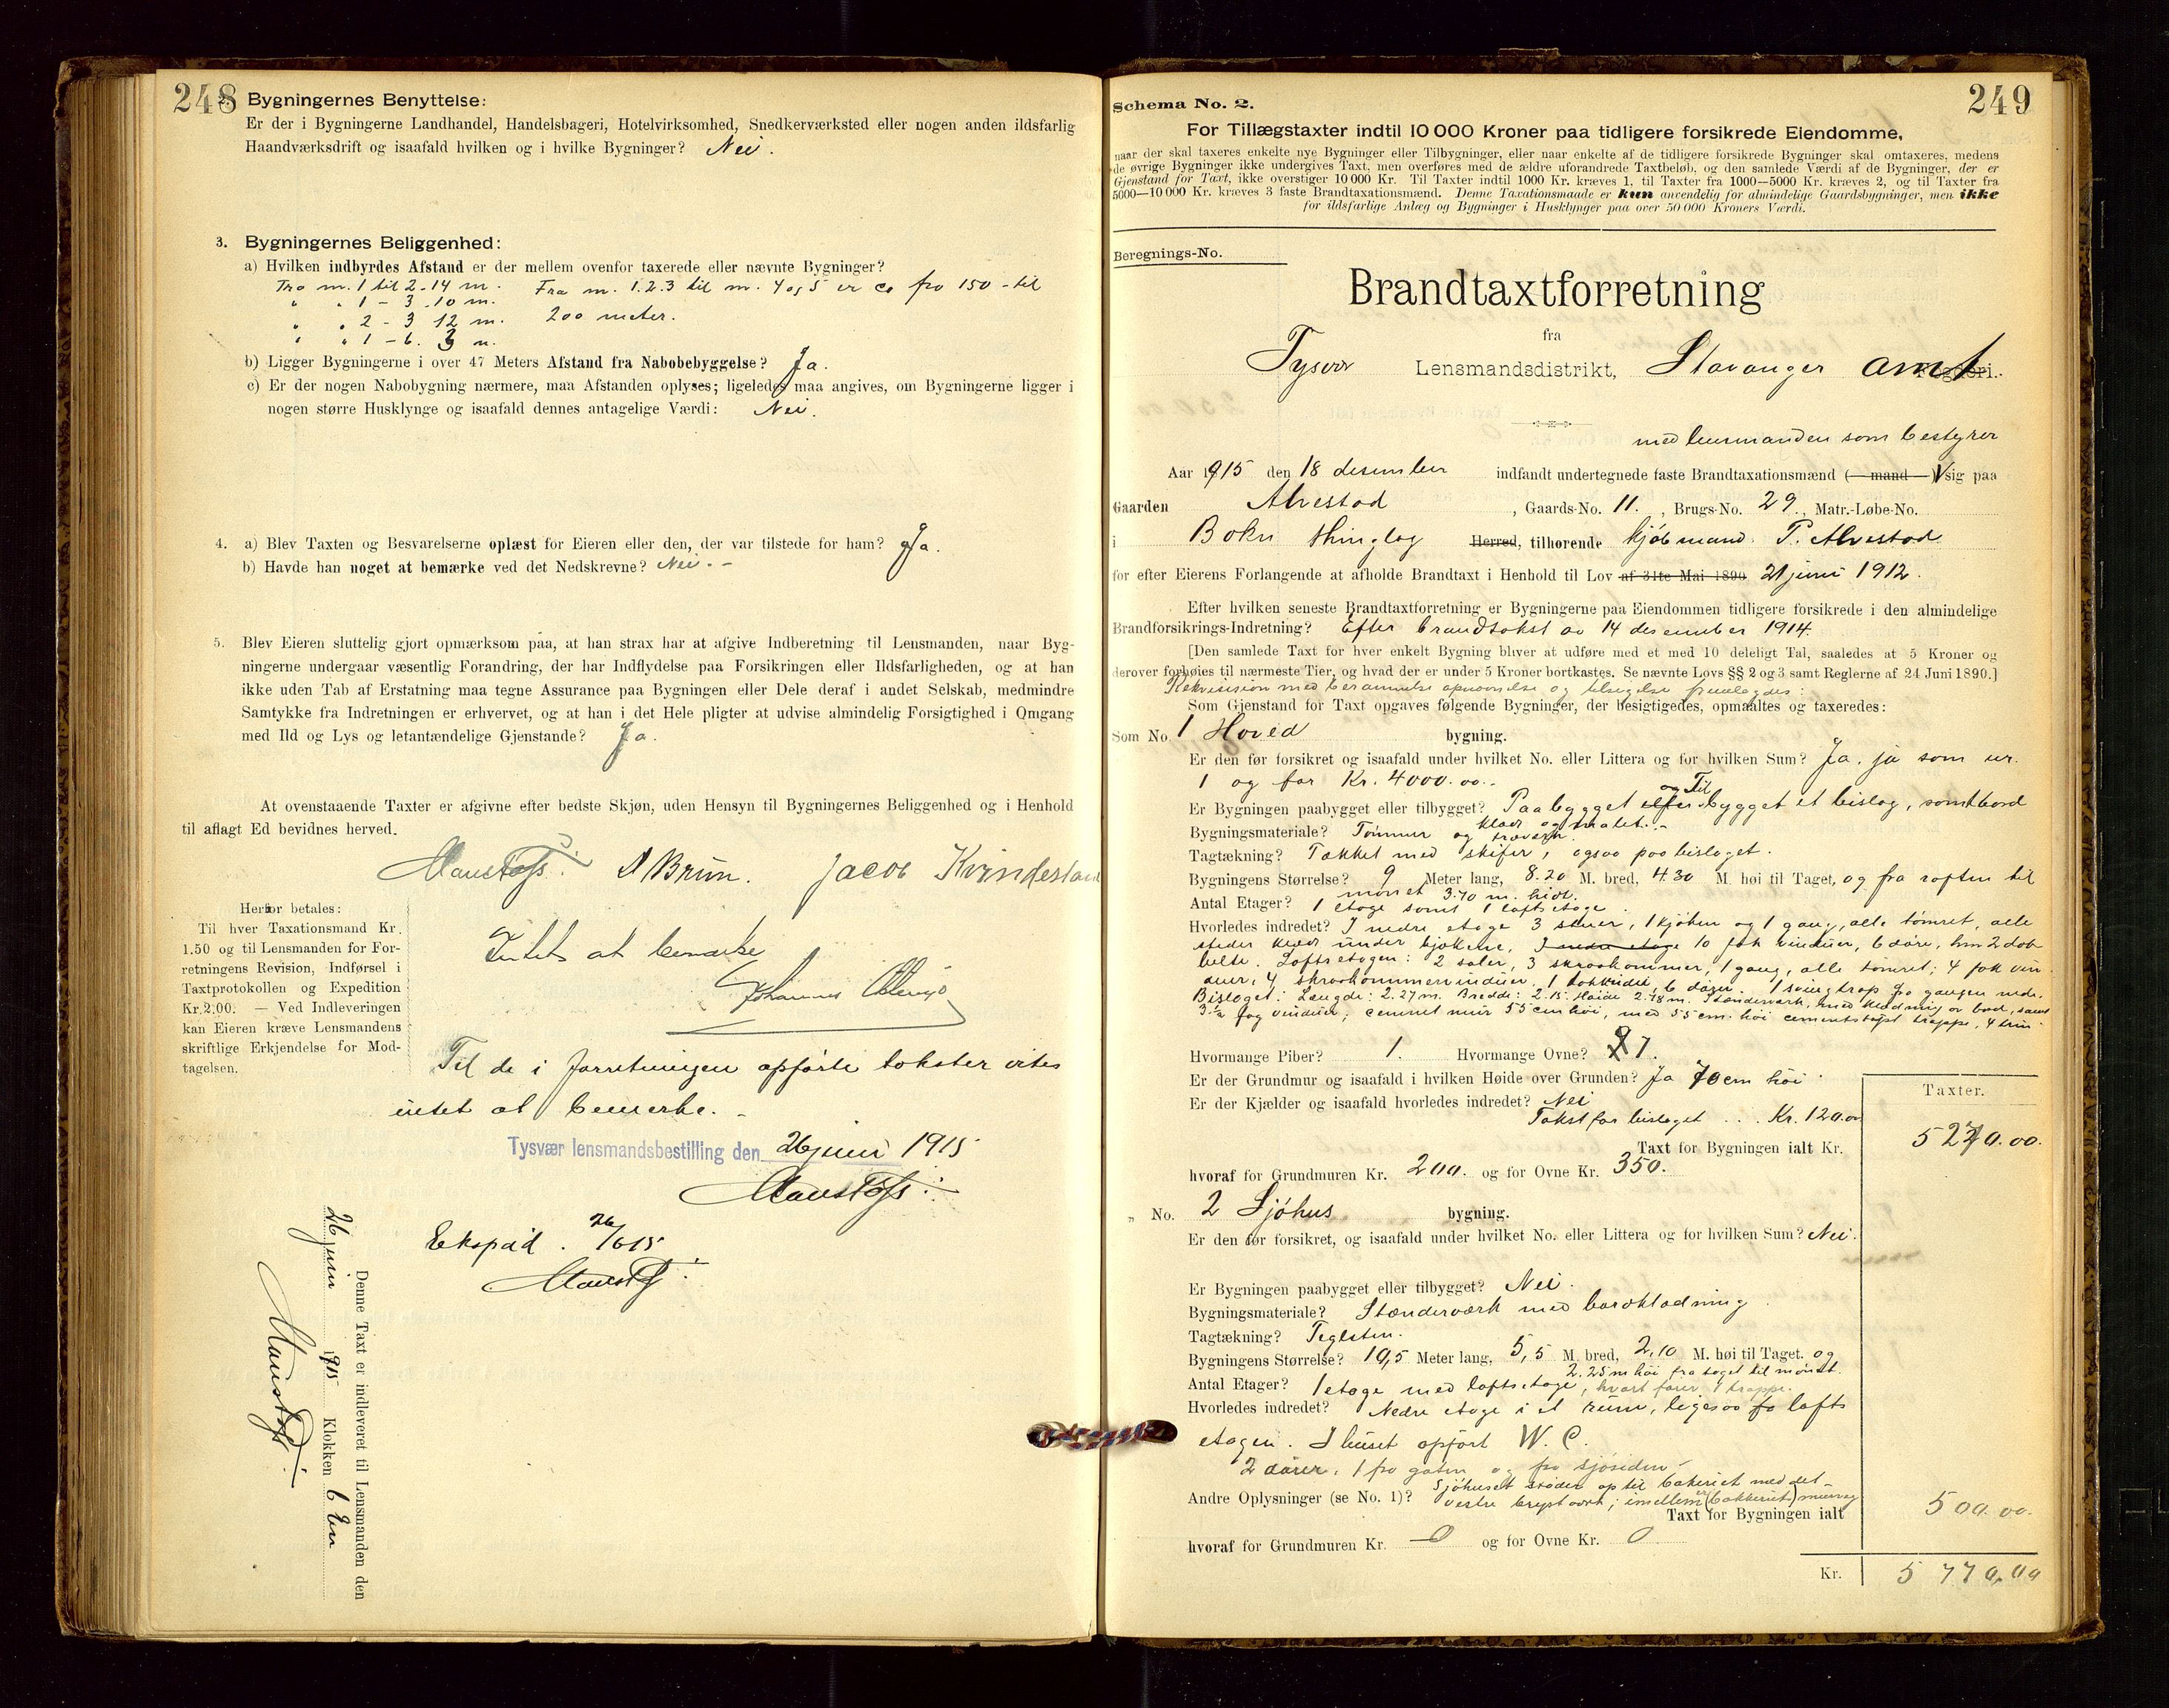 248
2. Bygningernes Benyttelse:
Er der i Bygningerne Landhandel, Handelsbageri, Hotelvirksomhed, Snedkerværksted eller nogen anden ildsfarlig
Haandværksdrift og isaafald hvilken og i hvilke Bygninger? Nei.
3. Bygningernes Beliggenhed:
a) Hvilken indbyrdes Afstand er der mellem ovenfor taxerede eller nævnte Bygninger?
Fra nr. 1 til 2 - 14 m. Fra nr. 1.2.3 til nr. 4 og 5 er ca fra 150 - til
" " 1 - 3 10 m.
" " 2 - 3 12 m. 200 meter.
" " 1 - 6. 3 m.
b) Ligger Bygningerne i over 47 Meters Afstand fra Nabobebyggelse? Ja.
c) Er der nogen Nabobygning nærmere, maa Afstanden oplyses; ligeledes maa angives, om Bygningerne ligger i
nogen større Husklynge og isaafald dennes antagelige Værdi: Nei.
4. a) Blev Taxten og Besvarelserne oplæst for Eieren eller den, der var tilstede for ham? Ja.
b) Havde han noget at bemærke ved det Nedskrevne? Nei. -
5. Blev Eieren sluttelig gjort opmærksom paa, at han strax har at afgive Indberetning til Lensmanden, naar Byg-
ningerne undergaar væsentlig Forandring, der har Indflydelse paa Forsikringen eller Ildsfarligheden, og at han
ikke uden Tab af Erstatning maa tegne Assurance paa Bygningen eller Dele deraf i andet Selskab, medmindre
Samtykke fra Indretningen er erhvervet, og at han i det Hele pligter at udvise almindelig Forsigtighed i Omgang
med Ild og Lys og letantændelige Gjenstande? Ja.
At ovenstaaende Taxter er afgivne efter bedste Skjøn, uden Hensyn til Bygningernes Beliggenhed og i Henhold
til aflagt Ed bevidnes herved.
Brun. Jacob Kvindesland
Herfor betales:
Til hver Taxationsmand Kr.
1.50 og til Lensmanden for For-
retningens Revision, Indførsel i
Taxtprotokollen og Expedition
Kr. 2.00. — Ved Indleveringen
kan Eieren kræve Lensmandens
skriftlige Erkjendelse for Mod-
tagelsen.
Intet at bemærke
Johannes
Til de i forretningen opførte takster vites
intet at bemerke. -
Tysvær lensmandsbestilling den 26 juni 1915
Ekspéd. 26/6 15
Denne Taxt er indleveret til Lensmanden den
26 juni 1915 Klokken 6 Em
249
Schema No. 2.
For Tillægstaxter indtil 10 000 Kroner paa tidligere forsikrede Eiendomme,
naar der skal taxeres enkelte nye Bygninger eller Tilbygninger, eller naar enkelte af de tidligere forsikrede Bygninger skal omtaxeres, medens
de øvrige Bygninger ikke undergives Taxt, men overføres med de ældre uforandrede Taxtbeløb, og den samlede Værdi af de Bygninger, der er
Gjenstand for Taxt, ikke overstiger 10 000 Kr. Til Taxter indtil 1000 Kr. kræves 1, til Taxter fra 1000—5000 Kr. kræves 2, og til Taxter fra
5000—10 000 Kr. kræves 3 faste Brandtaxationsmænd. Denne Taxationsmaade er kun anvendelig for almindelige Gaardsbygninger, men ikke
for ildsfarlige Anlæg og Bygninger i Husklynger paa over 50 000 Kroners Værdi.
Beregnings-No.
Brandtaxtforretning
fra
Tysvær Lensmandsdistrikt, Stavanger amt Fogderi.
med lensmanden som bestyrer
Aar 1915 den 18 desember indfandt undertegnede faste Brandtaxationsmænd (— mand —) sig paa
Gaarden Alvestad, Gaards-No. 11., Brugs-No. 29., Matr.-Løbe-No.
i Bokn thinglag Herred, tilhørende kjøbmand P. Alvestad
for efter Eierens Forlangende at afholde Brandtaxt i Henhold til Lov af 31te Mai 1890 21 juni 1912.
Efter hvilken seneste Brandtaxtforretning er Bygningerne paa Eiendommen tidligere forsikrede i den almindelige
Brandforsikrings-Indretning? Efter brandtakst av 14 desember 1914.
[Den samlede Taxt for hver enkelt Bygning bliver at udføre med et med 10 deleligt Tal, saaledes at 5 Kroner og
derover forhøies til nærmeste Tier, og hvad der er under 5 Kroner bortkastes. Se nævnte Lovs §§ 2 og 3 samt Reglerne af 24 Juni 1890.]
Rekvisision med berammelse opnævnelse og tilsigelse fremlagdes:
Som Gjenstand for Taxt opgaves følgende Bygninger, der besigtigedes, opmaaltes og taxeredes:
Som No. 1 Hoved bygning.
Er den før forsikret og isaafald under hvilket No. eller Littera og for hvilken Sum? Ja, ja som nr.
1 og for Kr. 4000.00.-
og Til
Er Bygningen paabygget eller tilbygget? Paabygget eller bygget et bislag, samt bord
klædt og malet.-
Bygningsmateriale? Tømmer og traverk.
Tagtækning? Tækket med skifer, ogsaa paa bislaget.
Bygningens Størrelse? 9 Meter lang, 8.20 M. bred, 4.30 M. høi til Taget, og fra raften til
mønet 3.70 m. hidt.
Antal Etager? 1 etage samt 1 loftsetage.
Hvorledes indredet? I nedre etage 3 stuer, 1 kjøken og 1 gang, alle tømret, alle
steder klædt under bjelkene, I nedre etage 10 fak vinduer, 6 døre, hvn 2 dob
belte. Loftsetagen: 2 saler, 3 skraakammer, 1 gang, alle tømret; 4 fak vin
duer, 4 skraakammervinduer, 6 døre. 1 svingtrap fra gangen nede.
Bislaget: Længde: 2.27 m. Bredde: 2.15. Høide 2.78 m. Stænderværk, med klædning av bord, samt
3 1/2 fag vinduer; cement mur 55 cm høi, med 55 cm. høi cementstøpt trappe, 4 trin.
Hvormange Piber? 1. Hvormange Ovne? 7.
Er der Grundmur og isaafald i hvilken Høide over Grunden? Ja 70 cm høi.
Er der Kjælder og isaafald hvorledes indredet? Nei
Takst for bislaget . . . Kr. 120.00
Taxter.
Taxt for Bygningen ialt Kr. 5270.00.
hvoraf for Grundmuren Kr. 200. og for Ovne Kr. 350.
„ No. 2 Sjøhus bygning.
Er den før forsikret, og isaafald under hvilket No. eller Littera og for hvilken Sum? Nei.
Er Bygningen paabygget eller tilbygget? Nei.
Bygningsmateriale? Stænderværk med bordklædning.
Tagtækning? Teglsten.
Bygningens Størrelse? 10,5 Meter lang, 5,5 M. bred, 2,10 M. høi til Taget. og
2.25 m høi fra taget til mønet.
Antal Etager? 1 etage med loftsetage, hvort fører 1 trappe.
Hvorledes indredet? Nedre etage i et rum, ligesaa fa lofts
etagen. I huset opført W. C.
2 dører, 1 fra gaten og fra sjøsiden.
Sjøhuset støder op til bakeriet med det
Andre Oplysninger (se No. 1)? vestre brystvort; imellem er (bakkeriet) murvæg
Taxt for Bygningen ialt 500.00.
hvoraf for Grundmuren Kr. 0 og for Ovne Kr. 0
Kr. 5 770,00